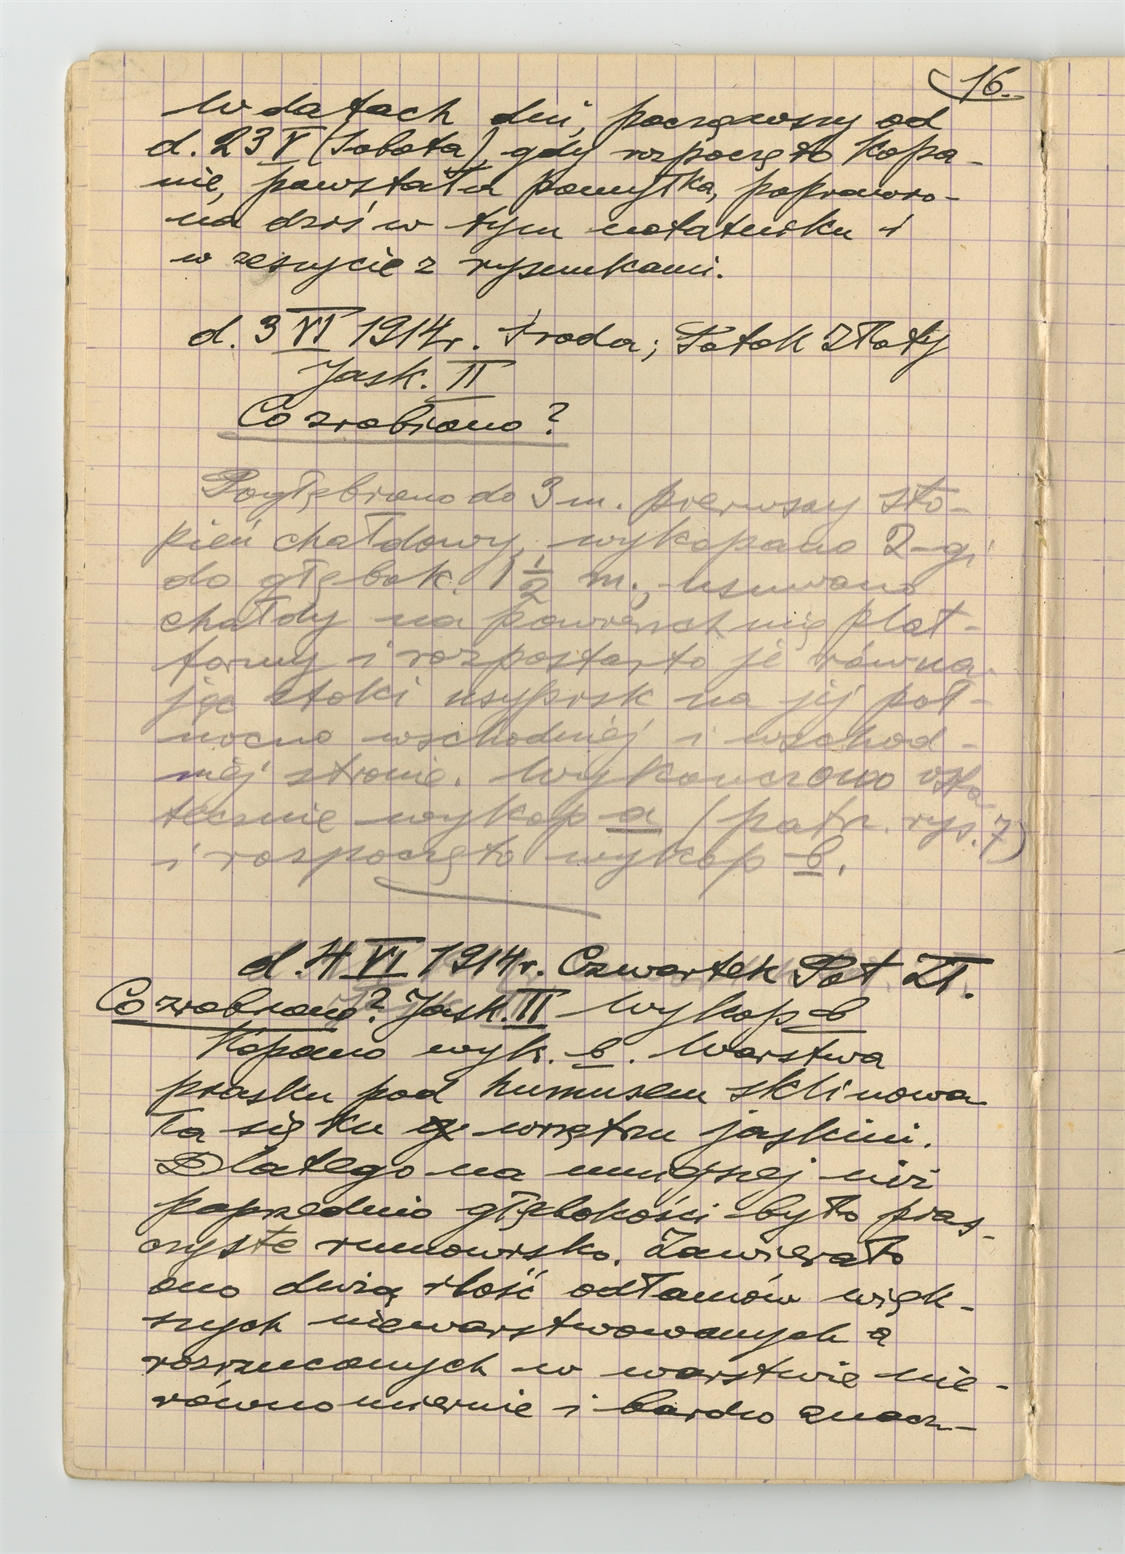 16.
W datach dni, począwszy od
d. 23 V (Sobota), gdy rozpoczęto kopa-
nie, powstała pomyłka, poprawio-
na dziś w tym notatniku i
w zeszycie z rysunkami.
d. 3 VI 1914 r. Środa; Potok Złoty
Jask. II
Co zrobiono?
Pogłębiono do 3 m. pierwszy sto-
pień chałdowy, wykopano 2-gi
do głębok. 1 1/2 m., usuwano
chałdy na powierzchnię plat-
formy i rozpostarto je równa-
jąc stoki usypisk na jej pół-
nocno wschodniéj i wschod-
niéj stronie. Wykończono osta-
tecznie wykop a (patrz. rys. 7)
i rozpoczęto wykop b.
d. 4 VI 1914 r. Czwartek Pot. Zł.
Co zrobiono? Jask. II Wykop b
Kopano wyk. b. Warstwa
piasku pod humusem sklinowa
ła się ku wnętrzu jaskini.
Dlatego na mniejszej niż
poprzednio głębokości było pias-
czyste rumowisko. Zawierało
ono dużą ilość odłamów więk-
szych niewarstwowanych a
rozrzuconych w warstwie nie-
równomiernie i bardzo znacz-